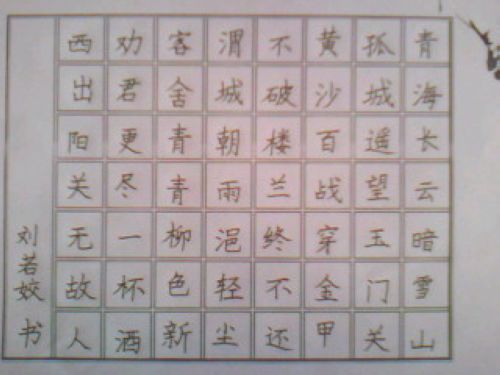 青海长云暗雪山
孤城遥望玉门关
黄沙百战穿金甲
不破楼兰终不还
渭城朝雨浥轻尘
客舍青青柳色新
劝君更尽一杯酒
西出阳关无故人
刘若姣 书